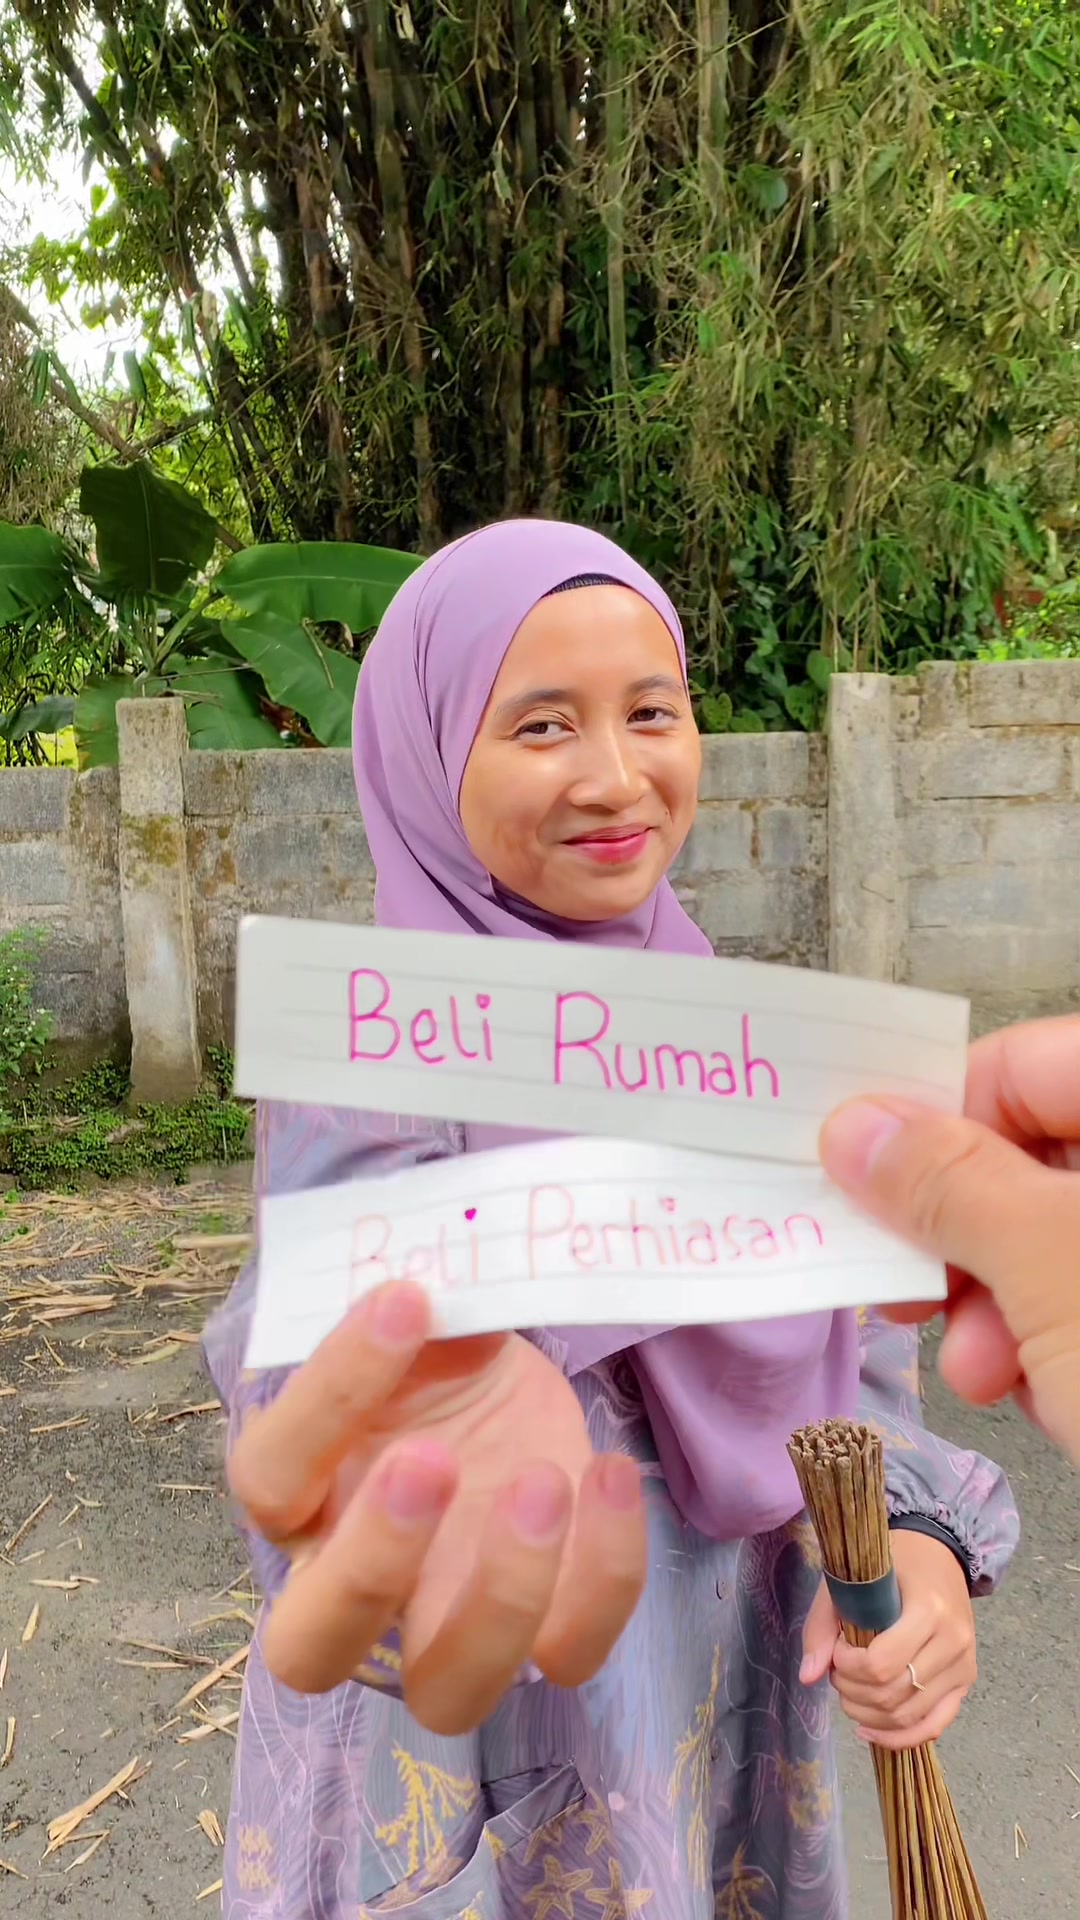 Beli Rumah
Beli Perhiasan